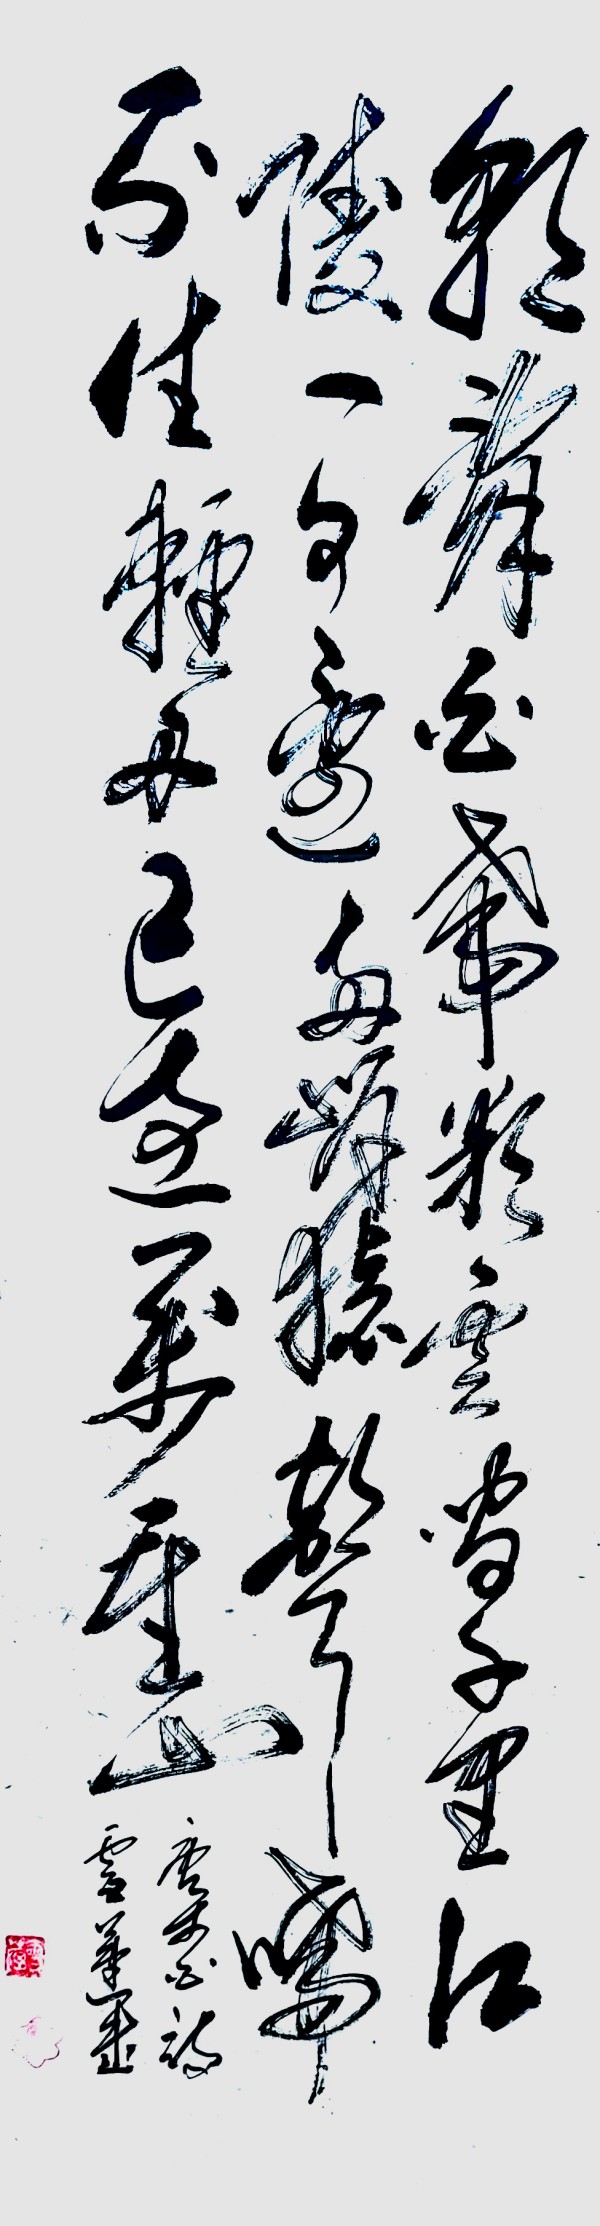 朝辭白帝彩雲間千里江
陵一日還兩岸猿聲啼
不住輕舟已過萬重山
唐李白詩